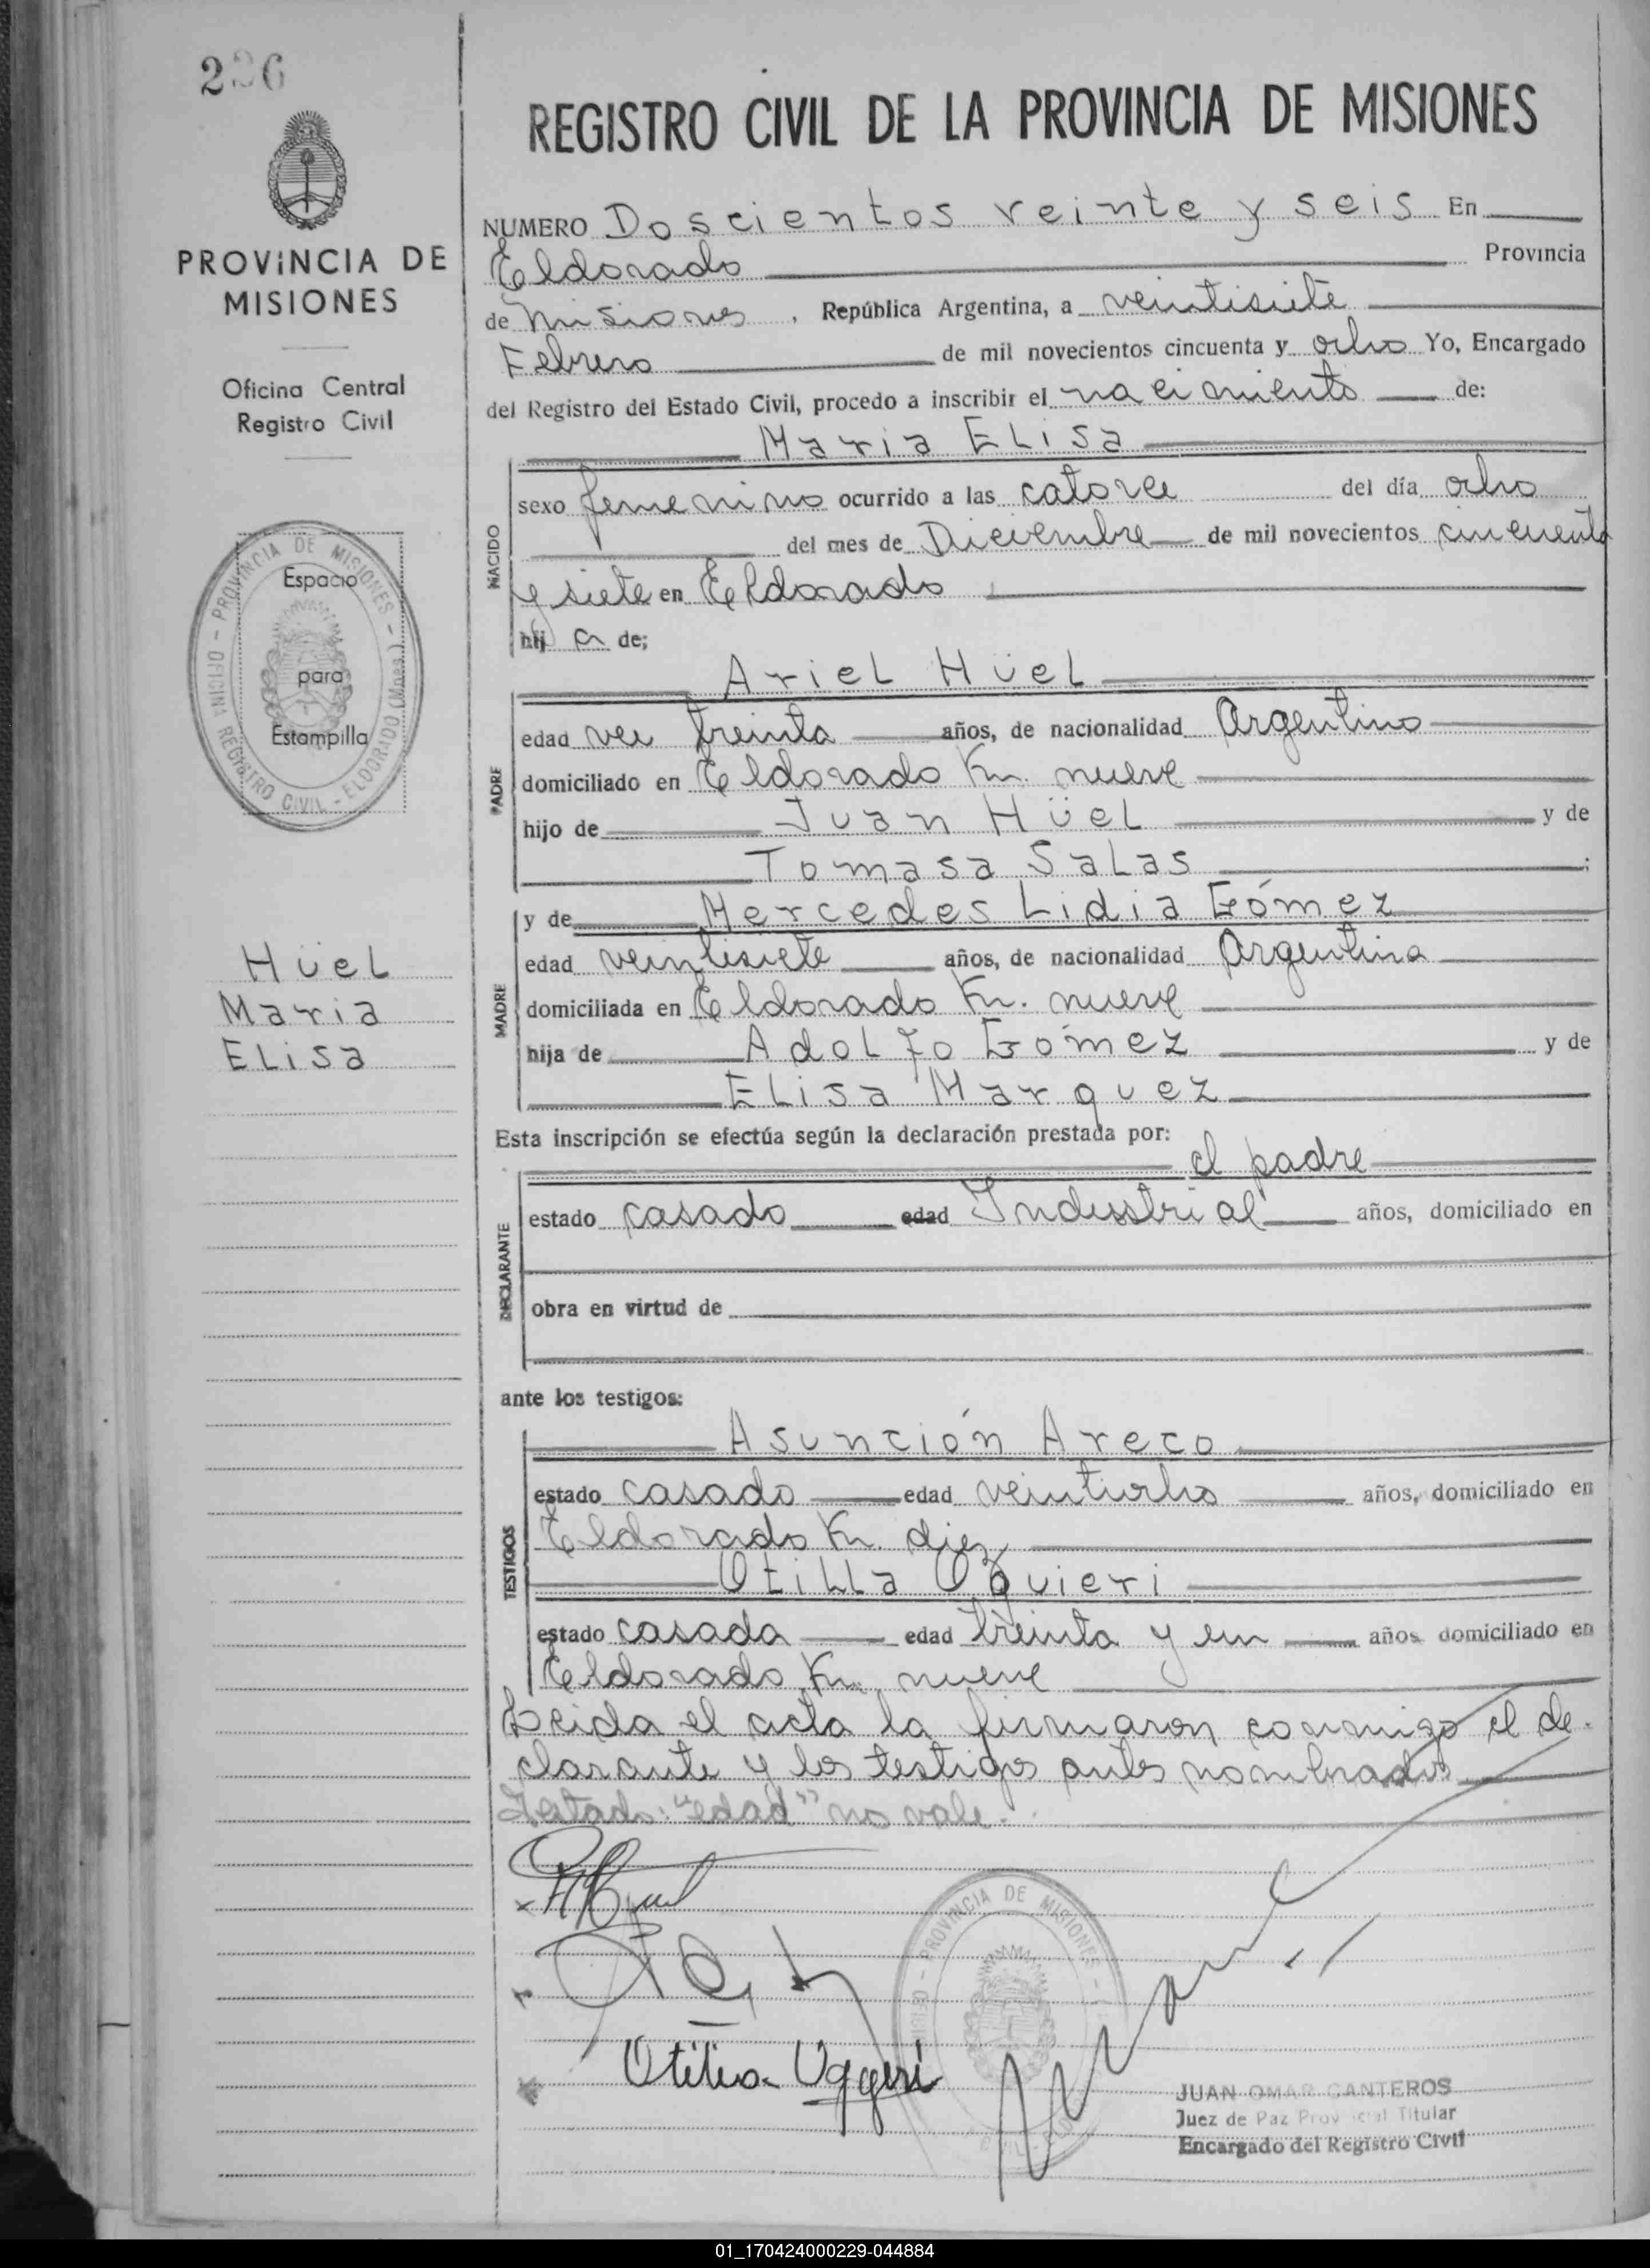 226
REGISTRO CIVIL DE LA PROVINCIA DE MISIONES
PROVINCIA DE
MISIONES
Oficina Central
Registro Civil
PROVINCIA DE MISIONES - ELDORADO (Mnes.)
REGISTRO CIVIL
Espacio
para
Estampilla
Hüel
Maria
Elisa
NUMERO Doscientos veinte y seis En
Eldorado Provincia
de Misiones, República Argentina, a veintisiete
Febrero de mil novecientos cincuenta y ocho Yo, Encargado
del Registro del Estado Civil, procedo a inscribir el nacimiento de:
Maria Elisa
NACIDO
sexo femenino ocurrido a las catorce del día ocho
del mes de Diciembre de mil novecientos cincuenta
y siete en Eldorado
hij a de;
PADRE
Ariel Hüel
edad treinta años, de nacionalidad Argentino
domiciliado en Eldorado Km. nueve
hijo de Juan Hüel y de
Tomasa Salas;
MADRE
y de Mercedes Lidia Gómez
edad veintisiete años, de nacionalidad Argentina
domiciliada en Eldorado Km. nueve
hija de Adolfo Gómez y de
Elisa Marquez
Esta inscripción se efectúa según la declaración prestada por:
DECLARANTE
el padre
estado casado edad Industrial años, domiciliado en
obra en virtud de
ante los testigos:
TESTIGOS
Asunción Areco
estado casado edad veintiocho años, domiciliado en
Eldorado Km. diez
estado casada edad treinta y un años domiciliado en
Eldorado Km. nueve
Leida el acta la firmaron conmigo el de-
clarante y los testigos antes nombrados
Testado: "edad" no vale.-
Otilia
PROVINCIA DE MISIONES
JUAN OMAR CANTEROS
Juez de Paz Provincial Titular
Encargado del Registro Civil
01_170424000229-044884